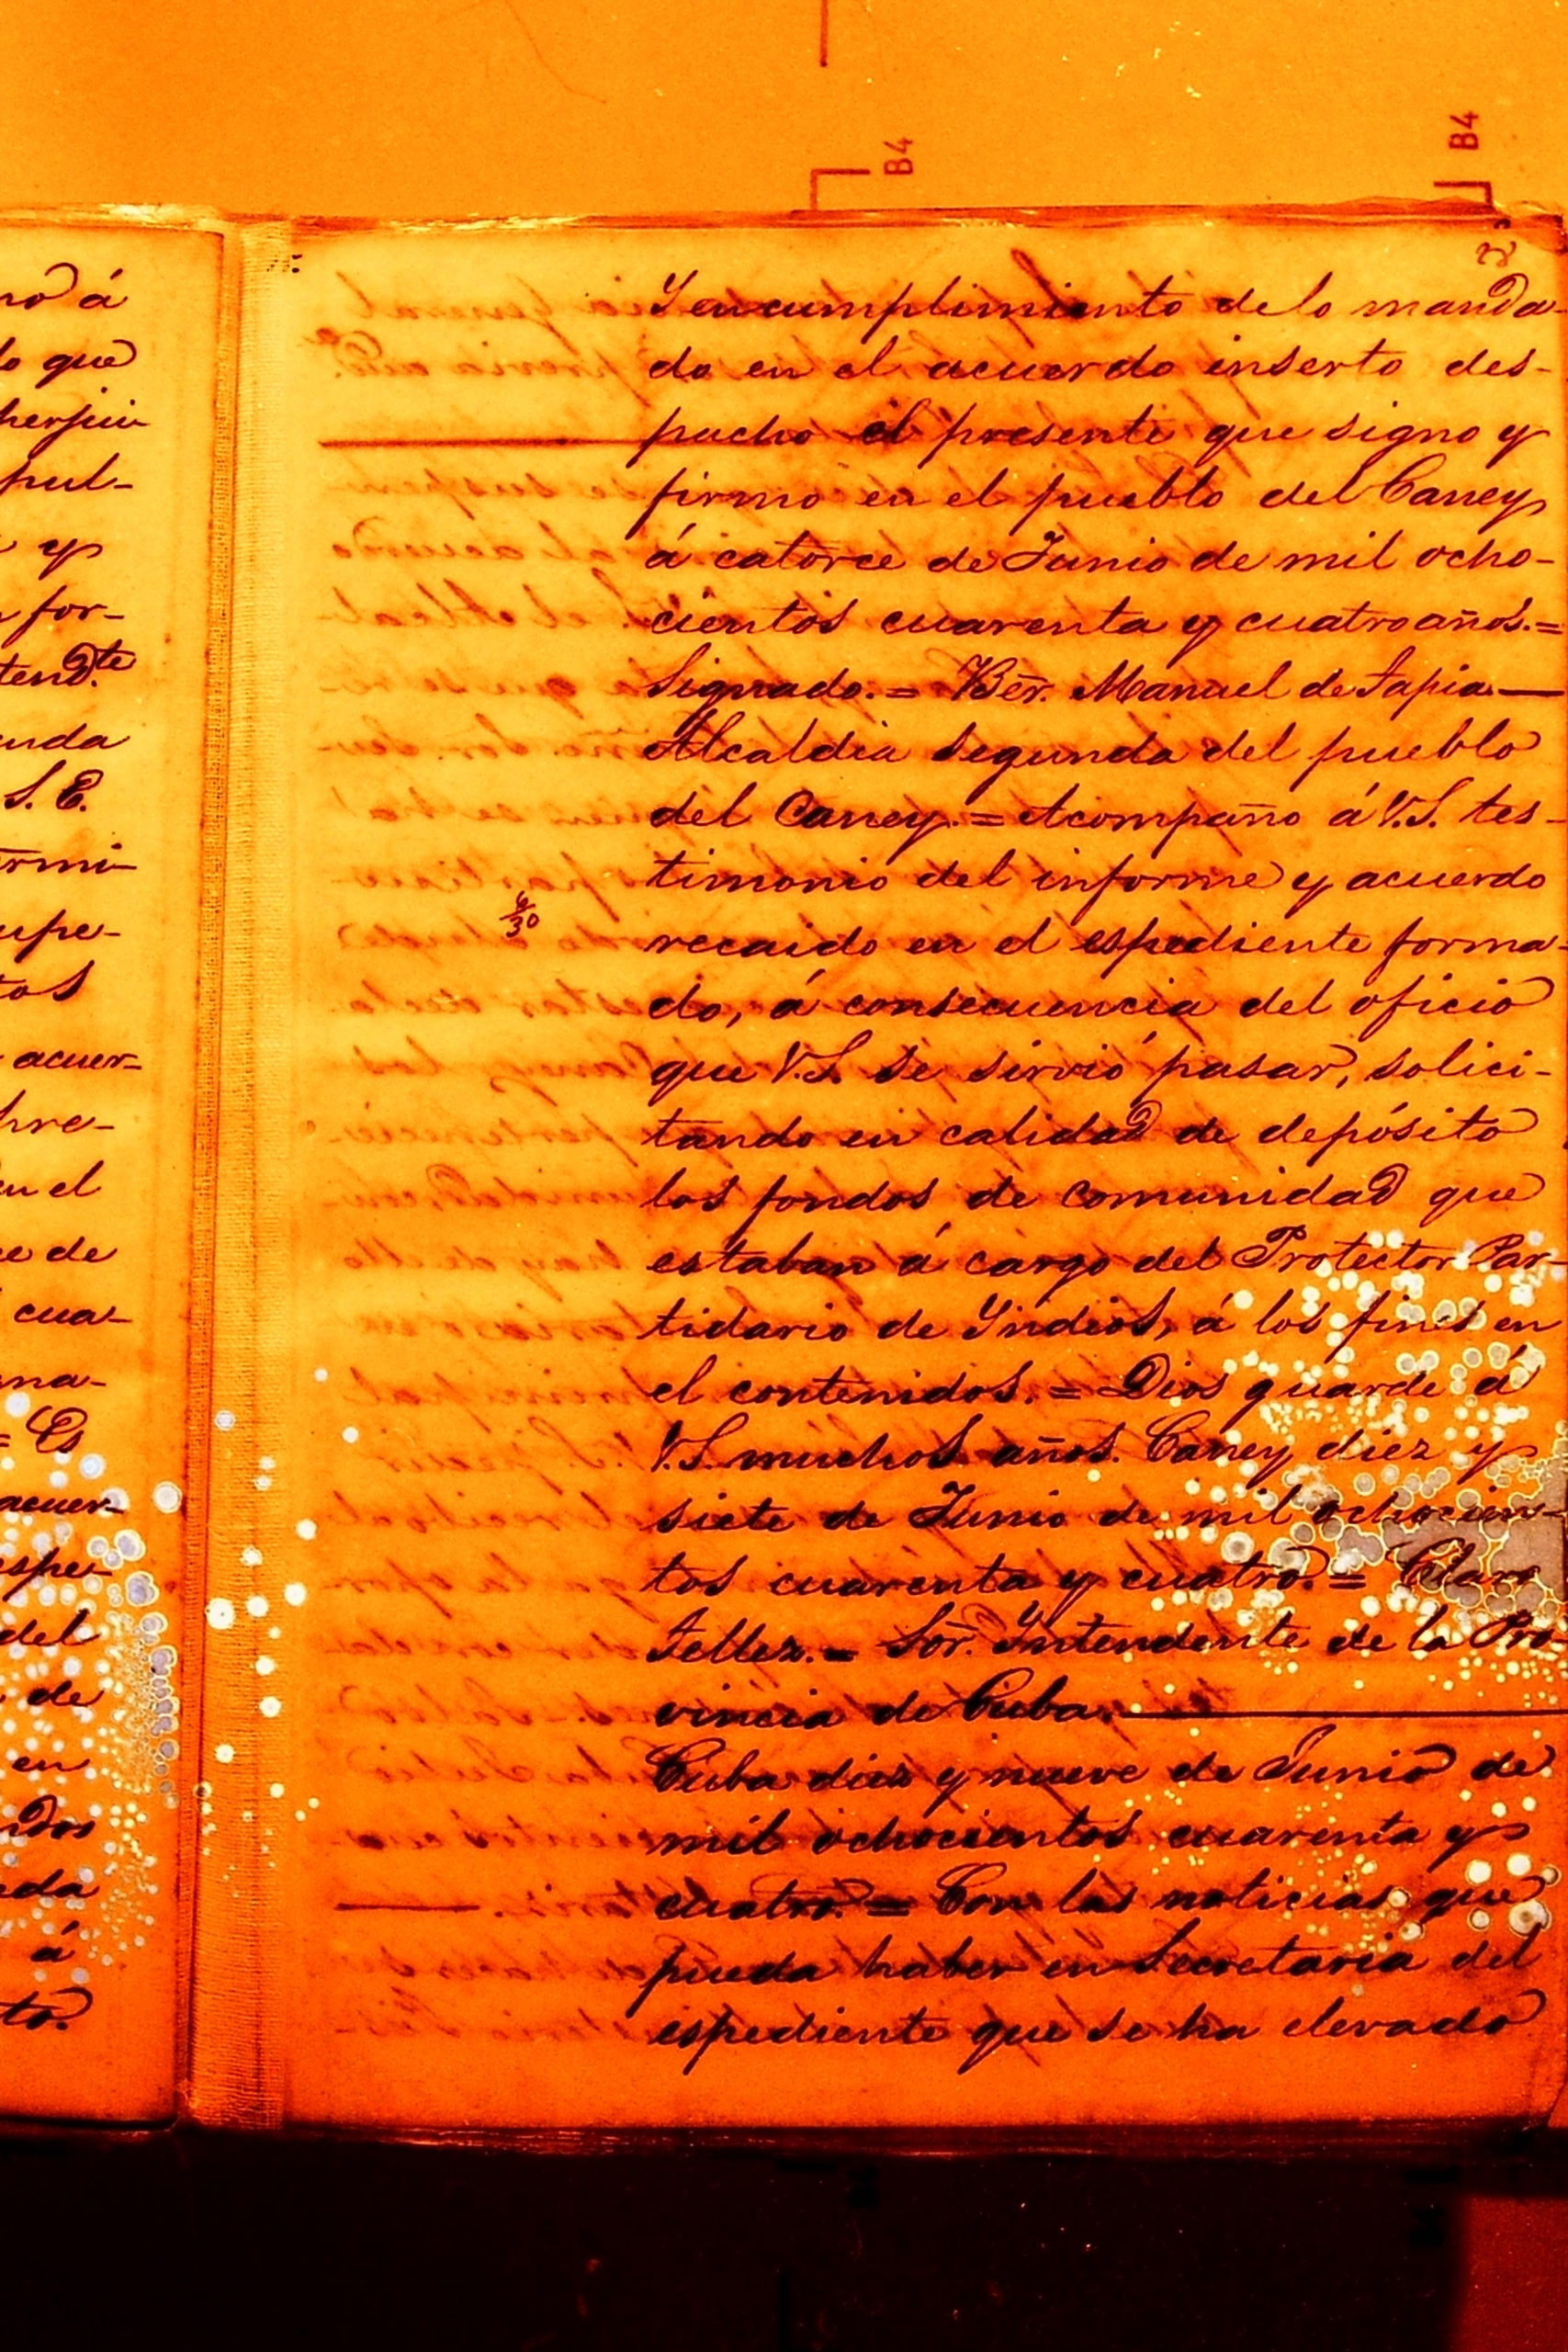 B4
B4
no á
lo que
perjui
pul-
y
for-
tend.te
nda
S. E.
rmi-
upe-
tos
acuer-
pre-
en el
ce de
cua-
ma-
= Es
acuer-
espe-
del
de
en
ados
eda
á
to.
Y en cumplimiento de lo manda-
do en el acuerdo inserto des-
pacho el presente que signo y
firmo en el pueblo del Caney
á catorce de Junio de mil ocho-
cientos cuarenta y cuatro años. =
Signado. = Bēr. Manuel de Tapia. —
Alcaldia segunda del pueblo
del Caney. = Acompaño á V.S. tes-
timonio del informe y acuerdo
6/30
recaido en el espediente forma-
do, á consecuencia del oficio
que V.S. se sirvió pasar, solici-
tando en calidad de depósito
los fondos de comunidad que
estaban á cargo del Protector Par-
tidario de Yndios, á los fines en
el contenidos. = Dios guarde á
V.S. muchos años. Caney diez y
siete de Junio de mil ochocien-
tos cuarenta y cuatro. = Claro
Tellez. = Sōr. Yntendente de la Pro
vincia de Cuba. —
Cuba diez y nueve de Junio de
mil ochocientos cuarenta y
cuatro. = Con las noticias que
pueda haber en Secretaria del
espediente que se ha elevado